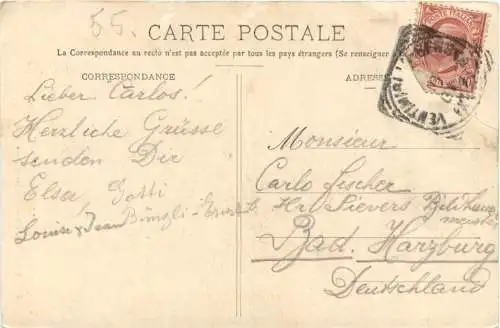 55.
CARTE POSTALE
La Correspondance au recto n'est pas acceptée par tous les pays étrangers (Se renseigner
CORRESPONDANCE
ADRESSE
Lieber Carlos!
Herzliche Grüsse
senden Dir
Elsa,
Louise & Jean Bingli-
Monsieur
Carlo Fischer
Hr. Sievers
Bad. Harzburg
Deutschland
POSTE ITALIANE